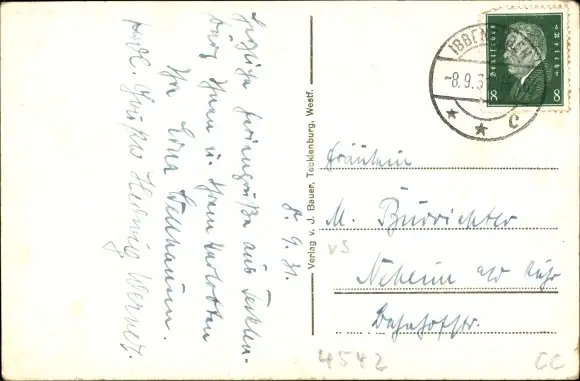 Herzliche Feriengrüße aus Tecklen-
burg Ihnen u. Ihrem
Ihre Erna
Hedwig Werner.
8.9.31.
Verlag v. J. Bauer, Tecklenburg, Westf.
IBBENBÜREN
-8.9.3
* * C
Deutsches Reich
8 8
Fräulein
M. Büdrichter
Neheim a/d Ruhr
Bahnhofstr.
VS
4542
CC